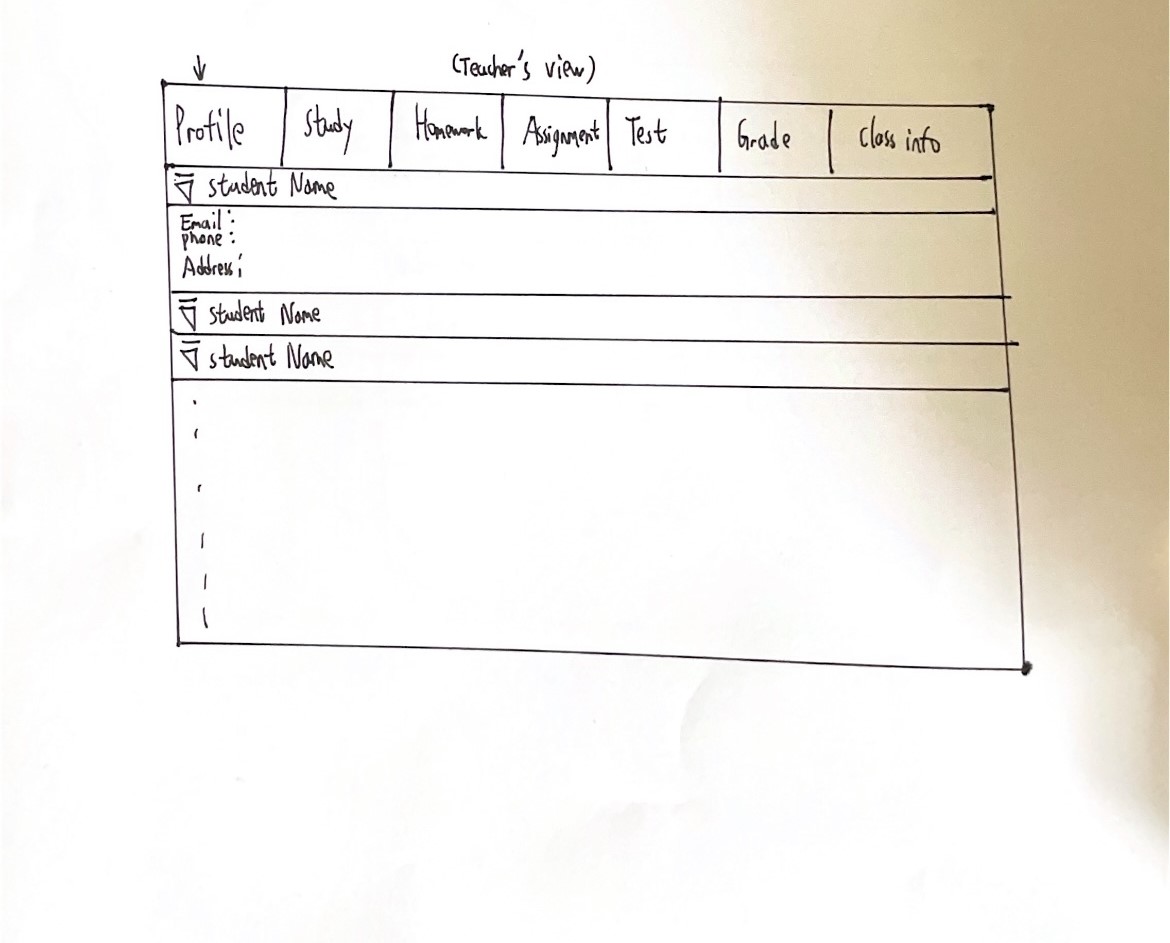 (Teacher's view)
Profile Study Homework Assignment Test Grade Class info
student Name
Email:
phone:
Address:
student Name
student Name